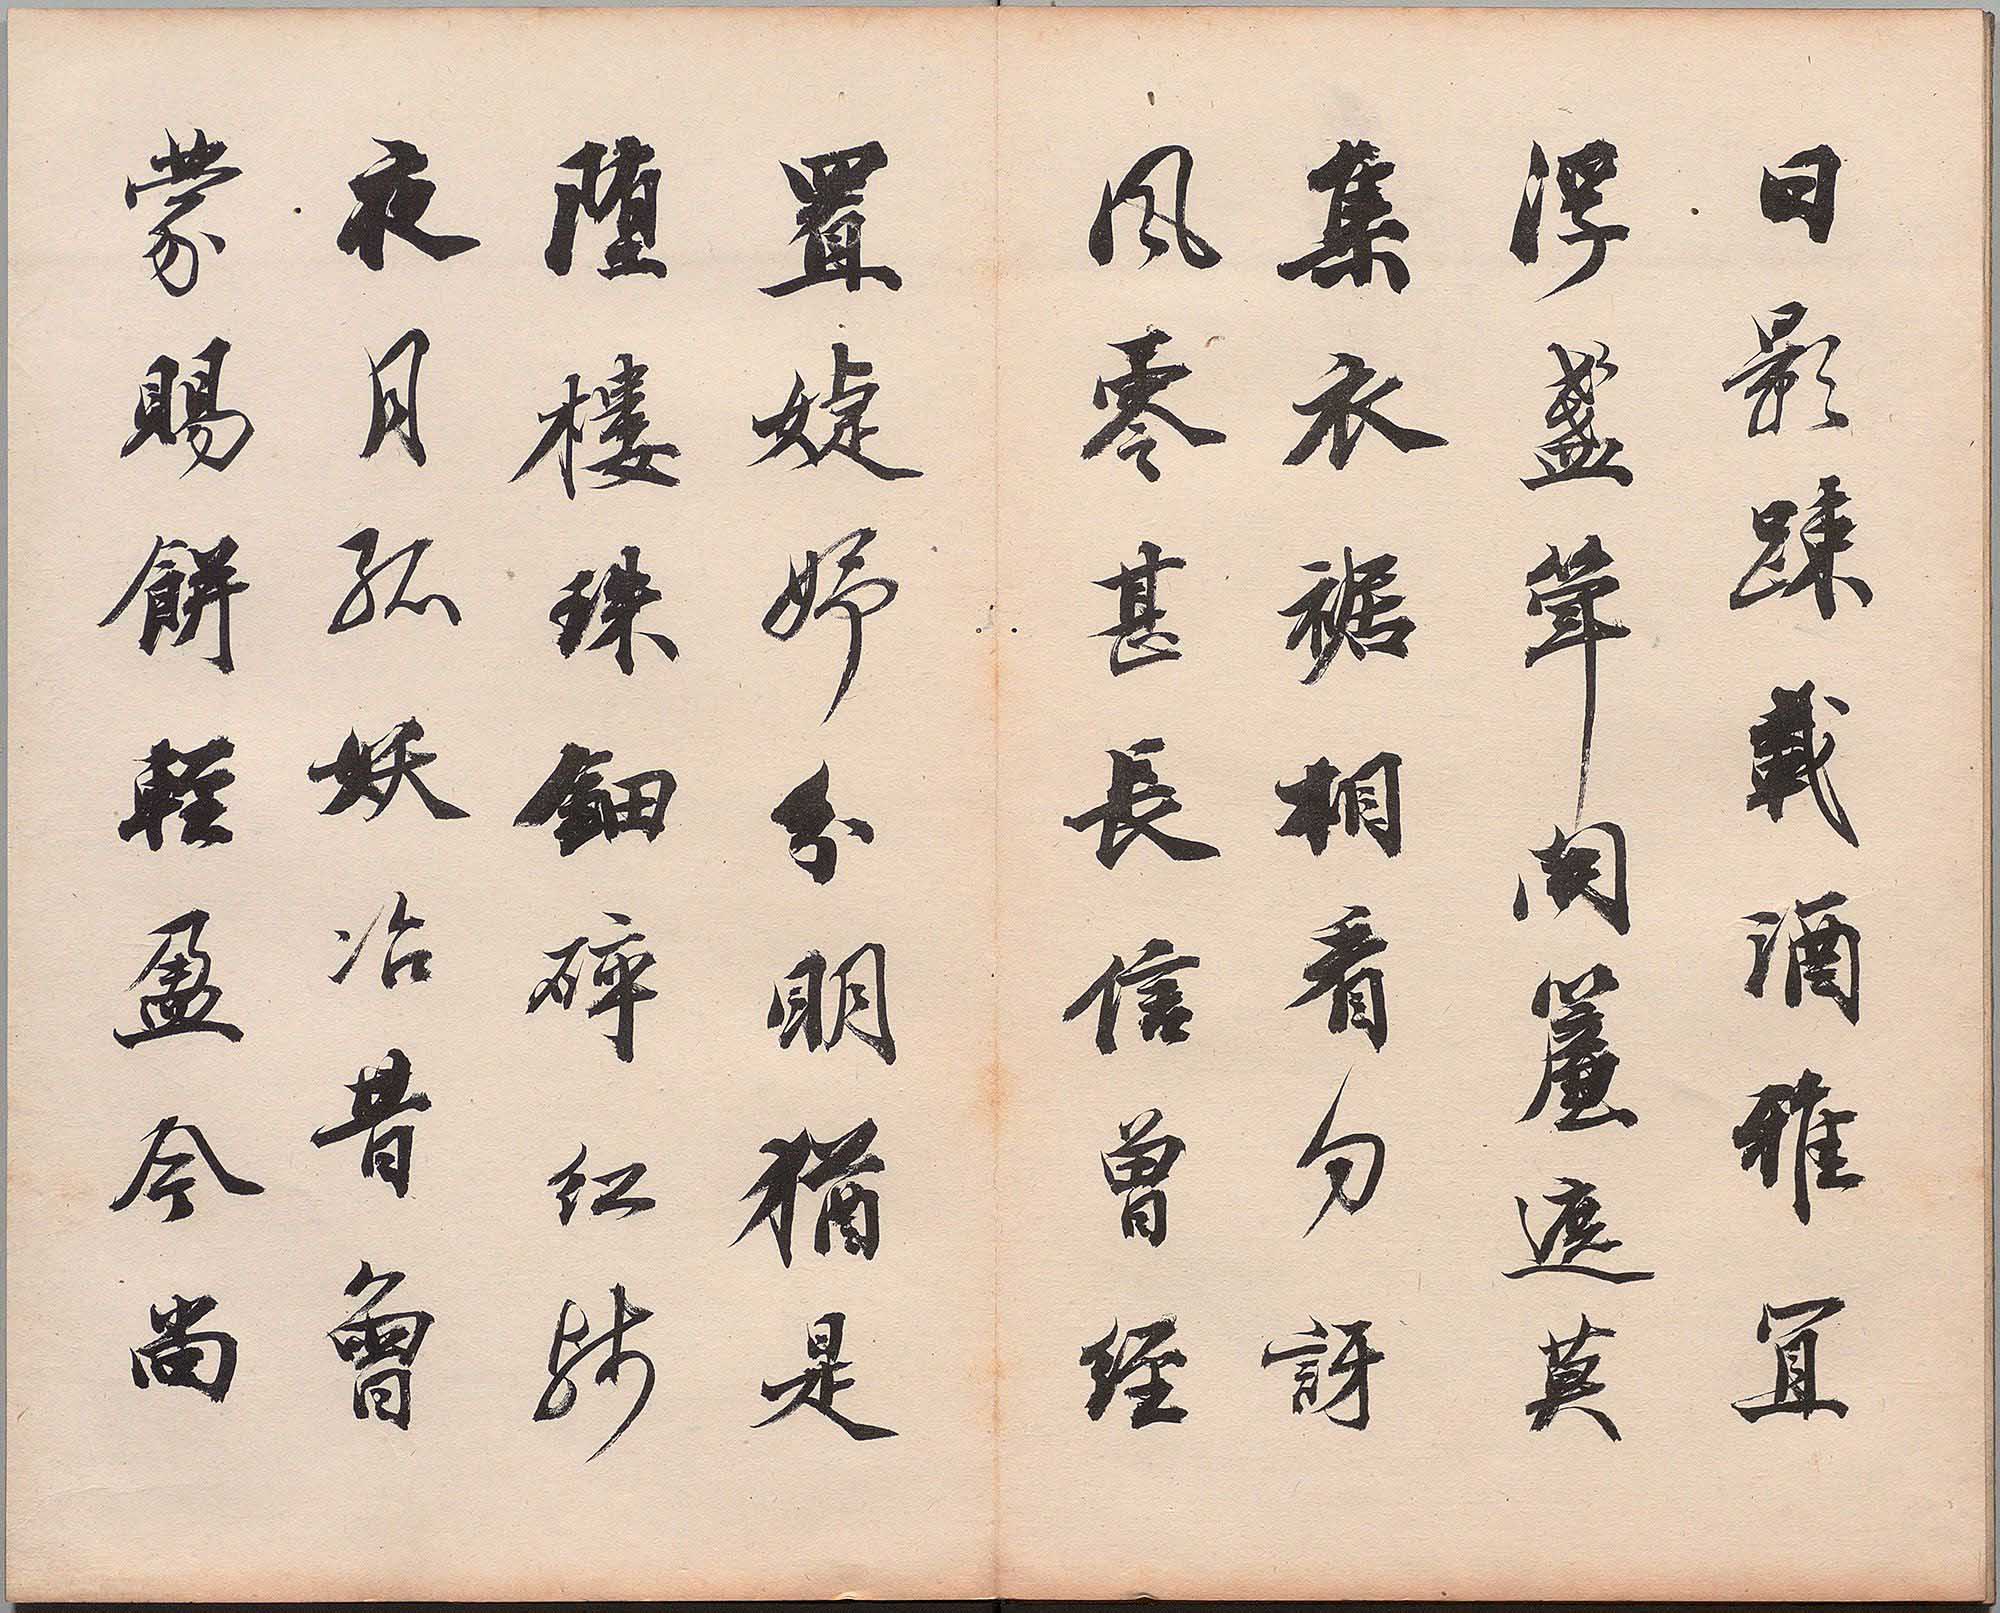 日影踈載酒雅宜
浮盞聳開簾遮莫
集衣裾相看勿訝
風零甚長信曾經
置婕妤分明猶是
堕樓珠鈿碎紅殘
夜月孤妖冶昔曾
蒙賜餅輕盈今尚